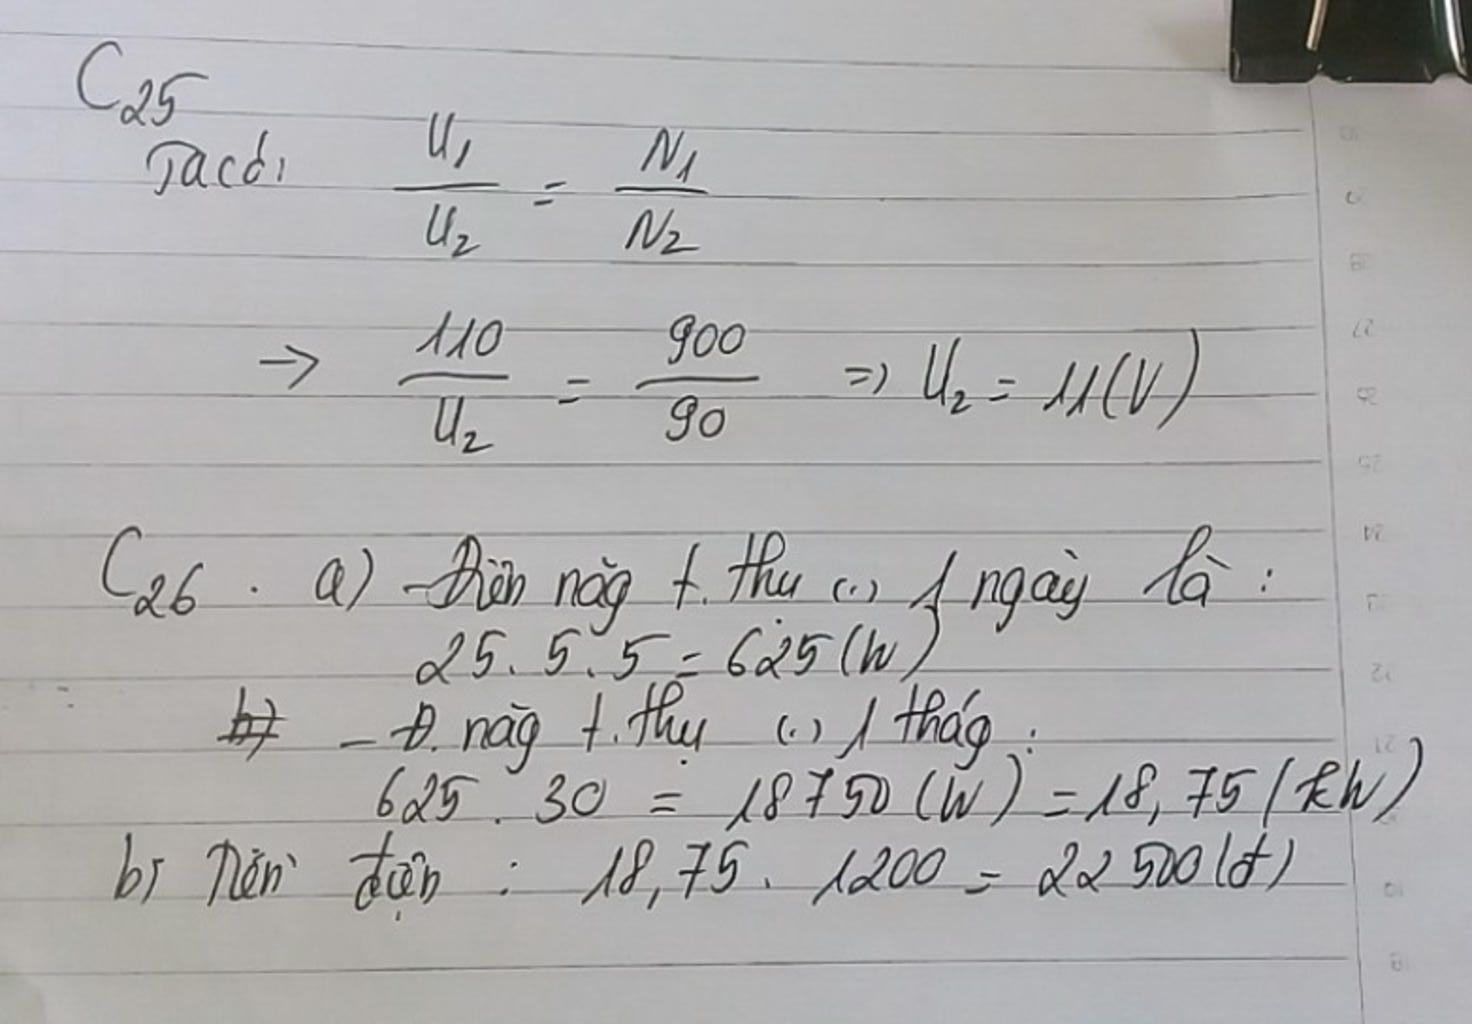 C25
Ta có: U1/U2 = N1/N2
→ 110/U2 = 900/90 => U2 = 11(V)
C26. a) - Điện năg t. thụ (.) 1 ngày là:
25.5.5 = 625(W)
b) - Đ. năg t. thụ (.) 1 thág:
625.30 = 18750(W) = 18,75(kW)
b) Tiền điện: 18,75.1200 = 22500(đ)